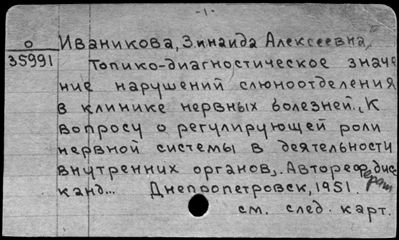 -1-
О
35991
Иваникова, Зинаида Алексеевна,
Топико-диагностическое значе
ние нарушений слюноотделения
в клинике нервных болезней. К
вопросу о регулирующей роли
нервной системы в деятельности
внутренних органов. Автореферат дисс.
канд... Днепропетровск, 1951.
см. след. карт.